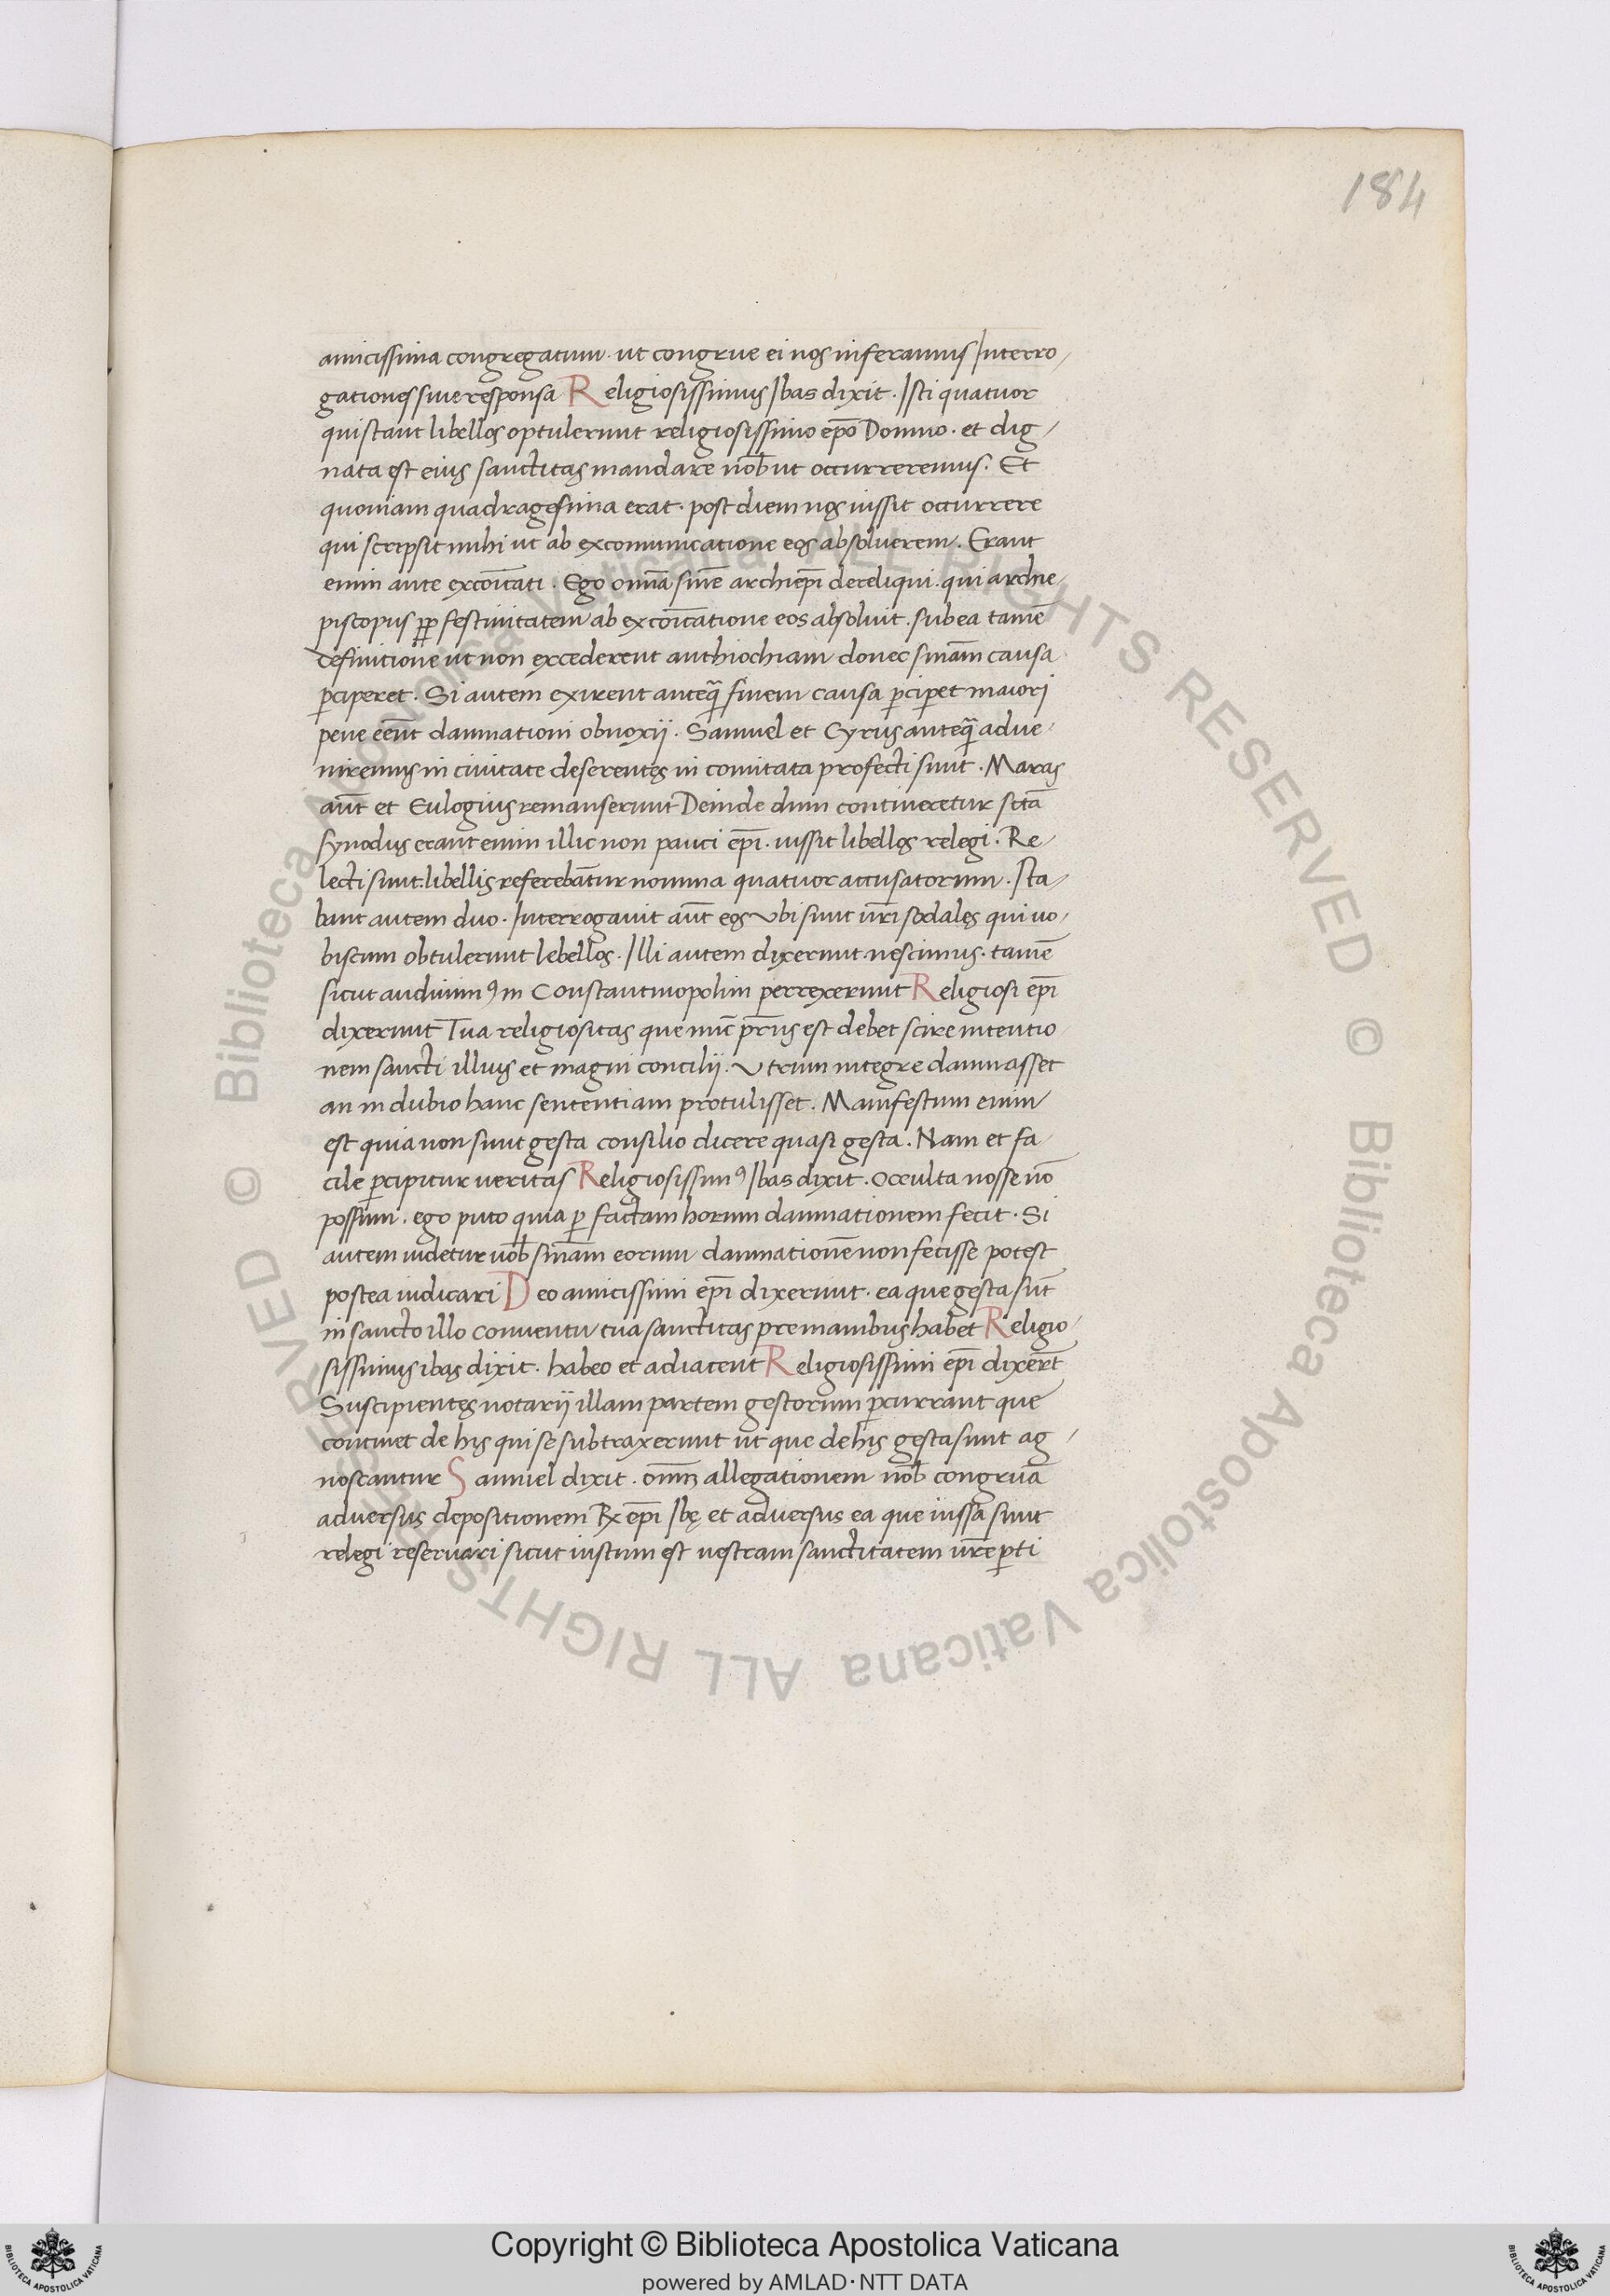 184
amicissima congregatum. ut congrue ei nos inferamus Interro
gationes siue responsa Religiosissimus Ibas dixit. Isti quatuor
qui stant libellos optulerunt religiosissimo ep̄o Domno. et dig
nata est eius sanctitas mandare nob̄ ut occurreremus. Et
quoniam quadragesima erat. post diem nos iussit occurrere
qui scripsit mihi ut ab excomunicatione eos absoluerem. Erant
enim ante excōicati. Ego om̄a sine archiep̄i dereliqui. qui archie
piscopus ꝓp festiuitatem ab excōicatione eos absoluit. sub ea tamē
definitione ut non excederent anthiochiam donec sn̄iam causa
ꝑciperet. Si autem exirent anteq̄ finem causa ꝑciperet maiori
pene eēnt damnationi obnoxij. Samuel et Cyrus anteq̄ adue
niremus in ciuitate deserentes in comitata profecti sunt. Maras
aūt et Eulogius remanserunt Deinde dum contineretur sctā
synodus erant enim illic non pauci ep̄i. iussit libellos relegi. Re
lecti sunt. libellis referebāntur nomina quatuor accusatorum. Sta
bant autem duo. Interrogauit aūt eos Vbi sunt ūri sodales qui uo
biscum obtulerunt lebellos. Illi autem dixerunt nescimus. tamē
sicut audiuimꝰ in Constantinopolim perrexerunt Religiosi ep̄i
dixerunt Tua religiositas que nūc p̄rus est debet scire intentio
nem sancti illius et magni concilij. Vtrum integre damnasset
an in dubio hanc sententiam protulisset. Manifestum enim
est quia non sunt gesta consilio dicere quasi gesta. Nam et fa
cile ꝑcipitur ueritas Religiosissimꝰ Ibas dixit. Occulta nosse nō
possum. ego puto quia ꝑ factam horum damnationem fecit. Si
autem uidetur nob̄ sn̄iam eorum damnationē non fecisse potest
postea iudicari Deo amicissimi ep̄i dixerunt. ea que gesta sūt
in sancto illo conuentu tua sanctitas pre manibus habet Religio
sissimus ibas dixit. habeo et adiacent Religiosissimi ep̄i dixer̄t
Suscipientes notarij illam partem gestorum ꝑcurrant que
continet de his qui se subtraxerunt ut que de his gesta sunt ag
noscantur Samuel dixit. om̄m allegationem nob̄ congruā
aduersus depositionem Rx ep̄i Ibę et aduersus ea que iussa sunt
relegi reseruari sicut iustum est uestram sanctitatem ūre ꝑti
© Biblioteca Apostolica Vaticana ALL RIGHTS RESERVED © Biblioteca Apostolica Vaticana ALL RIGHTS RESERVED
Copyright © Biblioteca Apostolica Vaticana
powered by AMLAD·NTT DATA
BIBLIOTECA APOSTOLICA VATICANA
BIBLIOTECA APOSTOLICA VATICANA